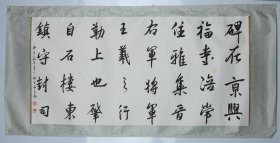 碑在京興
福寺浩常
住雅集晉
右軍將軍
王羲之行
勒上也肇
自石樓東
鎮守封司